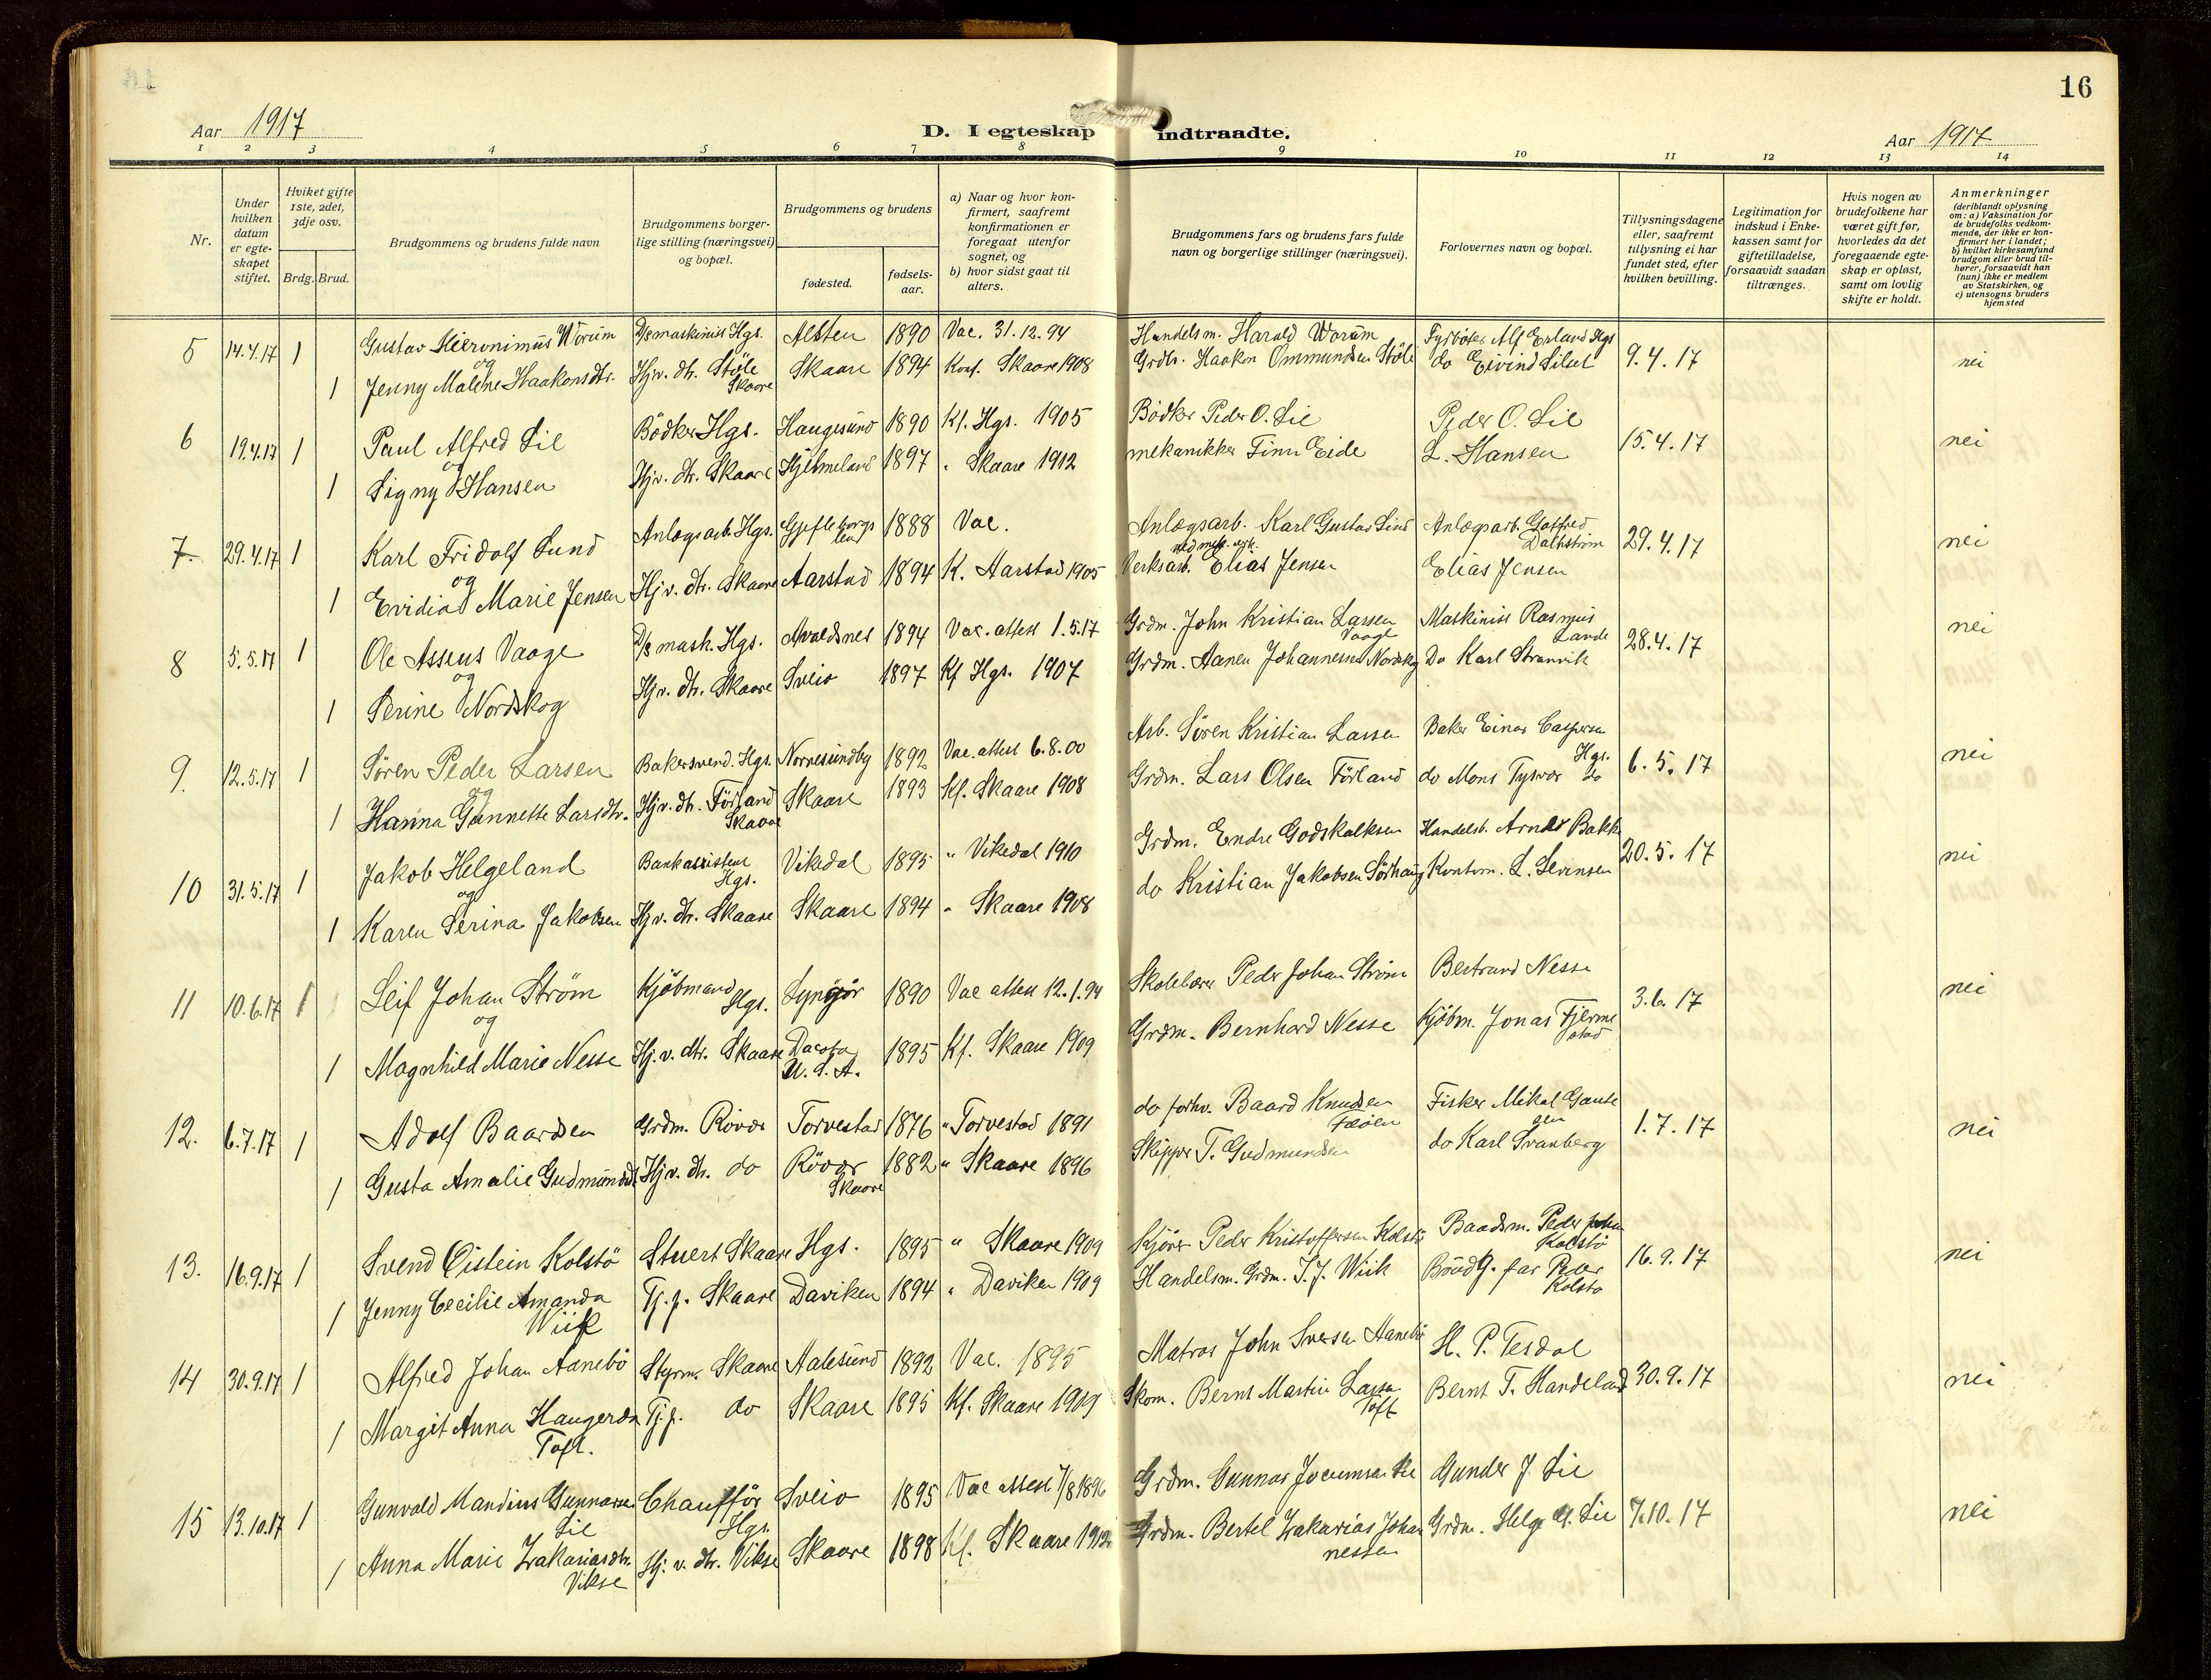 16
Aar 1917
D. I egteskap indtraadte.
Aar 1917
1 2 3 4 5 6 7 8 9 10 11 12 13 14
Nr.
Under hvilken datum er egte-skapet stiftet.
Hviket gifte 1ste, 2det, 3dje osv.
Brdg. Brud.
Brudgommens og brudens fulde navn
Brudgommens borger-lige stilling (næringsvei) og bopæl.
Brudgommens og brudens
fødested.
fødsels-aar.
a) Naar og hvor kon-firmert, saafremt konfirmationen er foregaat utenfor sognet, og
b) hvor sidst gaat til alters.
Brudgommens fars og brudens fars fulde navn og borgerlige stillinger (næringsvei).
Forlovernes navn og bopæl.
Tillysningsdagene eller, saafremt tillysning ei har fundet sted, efter hvilken bevilling.
Legitimation for indskud i Enke-kassen samt for giftetilladelse, forsaavidt saadan tiltrænges.
Hvis nogen av brudefolkene har været gift før, hvorledes da det foregaaende egte-skap er opløst, samt om lovlig skifte er holdt.
Anmerkninger (deriblandt oplysning om: a) Vaksination for de brudefolks vedkom-mende, der ikke er kon-firmert her i landet; b) hvilket kirkesamfund brudgom eller brud til-hører, forsaavidt han (hun) ikke er medlem av Statskirken, og c) utensogns bruders hjemsted
5 14.4.17 1 Gustav Hieronimus Worum D/s maskinist Hgs. Alsten 1890 Vac. 31.12.94 Handelsm. Harald Worum Fyrbøter Alf Erland Hgs 9.4.17 nei
og
1 Jenny Malene Haakonsdtr. Hjv. dtr. Støle Skaare Skaare 1894 Konf. Skaare 1908 Grdbr. Haakon Ommundsen Støle do Eivind Silset
6 19.4.17 1 Paul Alfred Lie Bödker Hgs. Haugesund 1890 Kf. Hgs. 1905 Bödker Peder O. Lie Peder O. Lie 15.4.17 nei
og
1 Signy Hansen Hjv. dtr. Skaare Hjelmeland 1897 " Skaare 1912 mekanikker Finn Eide L. Hansen
7 29.4.17 1 Karl Fridolf Lund Anlægsarb. Hgs. Gjefleborgs len 1888 Vac. Anlægsarb. Karl Gustav Lind Anlægsarb. Gotfred Dalhström 29.4.17 nei
og
1 Evidia Marie Jensen Hjv. dtr. Skaare Aarstad 1894 K. Aarstad 1905 Verksarb. Elias Jensen Elias Jensen
8 5.5.17 1 Ole Assens Vaage D/s mask. Hgs. Avaldsnes 1894 Vac. attest 1.5.17 Grdm. John Kristian Larsen Vaage Maskinist Rasmus Lande 28.4.17 nei
og
1 Serine Nordskog Hjv. dtr. Skaare Sveio 1897 Kf Hgs. 1907 Grdm. Aanen Johannesen Nordskog Do Karl Stranvik
9. 12.5.17 1 Søren Peder Larsen Bakersvend. Hgs. Nørresundby 1892 Vac. attest 6.8.00 Arb. Søren Kristian Larsen Baker Einar Caspersen Hgs. 6.5.17 nei
og
1 Hanna Gunnette Larsdtr. Hjv. dtr. Førland Skaare Skaare 1893 Kf. Skaare 1908 Grdm. Lars Olsen Førland do Mons Tysvær do
10 31.5.17 1 Jakob Helgeland Bankassistent Hgs. Vikedal 1895 " Vikedal 1910 Grdm. Endre Godskalksen Handelsb. Arnder Bakk 20.5.17 nei
og
1 Karen Serina Jakobsen Hjv. dtr. Skaare Skaare 1894 " Skaare 1908 do Kristian Jakobsen Sørhaug Kontorm. L. Sevinsen
11 10.6.17 1 Leif Johan Strøm Kjøbmand Hgs. Lyngör 1890 Vac attest 12.1.94 Skolelærer Peder Johan Strøm Bertrand Nesse 3.6.17 nei
og
1 Magnhild Marie Nesse Hj. v. dtr. Skaare Dacota U.S.A. 1895 Kf. Skaare 1909 Grdm. Bernhard Nesse Kjöbm. Jonas Fjermestad
12. 6.7.17 1 Adolf Baardsen Grdm. Røvær Torvestad 1876 " Torvestad 1891 do forhv. Baard Knudsen Feöen Fisker Mikal Gautesen 1.7.17 nei
1 Gusta Amalie Gudmundsd. Hjv. dtr. do Röver Skaare 1882 " Skaare 1896 Skipper T. Gudmundsen do Karl Svanberg
13. 16.9.17 1 Svend Öistein Kolstö Stuert Skaare Hgs. 1895 " Skaare 1909 Kjører Peder Kristoffersen Kolstö Baadsm. Peder Johan Kolstö 16.9.17 nei
1 Jenny Cecilie Amanda Wiik Tj.p. Skaare Daviken 1894 " Daviken 1909 Handelsm. Grdm. J. J. Wiik Brudg. far Peder Kolstø
14 30.9.17 1 Alfred Johan Aanebö Styrm. Skaare Aalesund 1892 Vac. 1895 Matros John Iversen Aanebö H. P. Tesdal 30.9.17 nei
1 Margit Anna Haugerda Toft. Tj.p. do Skaare 1895 Kf. Skaare 1909 Skom. Bernt Martin Larsen Toft Bernt T. Handeland
15 13.10.17 1 Gunvald Mandius Gunnarsen Lie Chaufför Hgs. Sveio 1895 Vac attest 7/8 1896 Grdm. Gunnar Jocumsen Lie Gunder J. Lie 7.10.17 nei
1 Anna Marie Zakariasdtr. Vikse Hj. v. dtr. Vikse Skaare 1898 Kf. Skaare 1912 Grdm. Bertel Zakarias Johannessen Grdm. Helge G. Lie